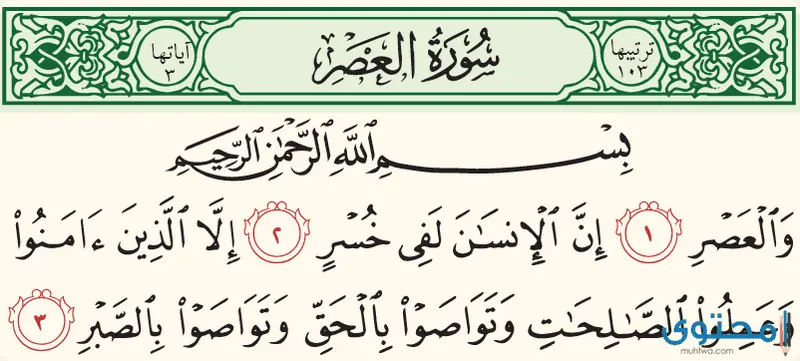 ترتيبها
١٠٣
سُورَةُ العَصْرِ
آياتها
٣
بِسْمِ ٱللَّهِ ٱلرَّحْمَٰنِ ٱلرَّحِيمِ
وَٱلْعَصْرِ ١ إِنَّ ٱلْإِنسَٰنَ لَفِى خُسْرٍ ٢ إِلَّا ٱلَّذِينَ ءَامَنُوا۟
وَعَمِلُوا۟ ٱلصَّٰلِحَٰتِ وَتَوَاصَوْا۟ بِٱلْحَقِّ وَتَوَاصَوْا۟ بِٱلصَّبْرِ ٣
محتوى
muhtwa.com